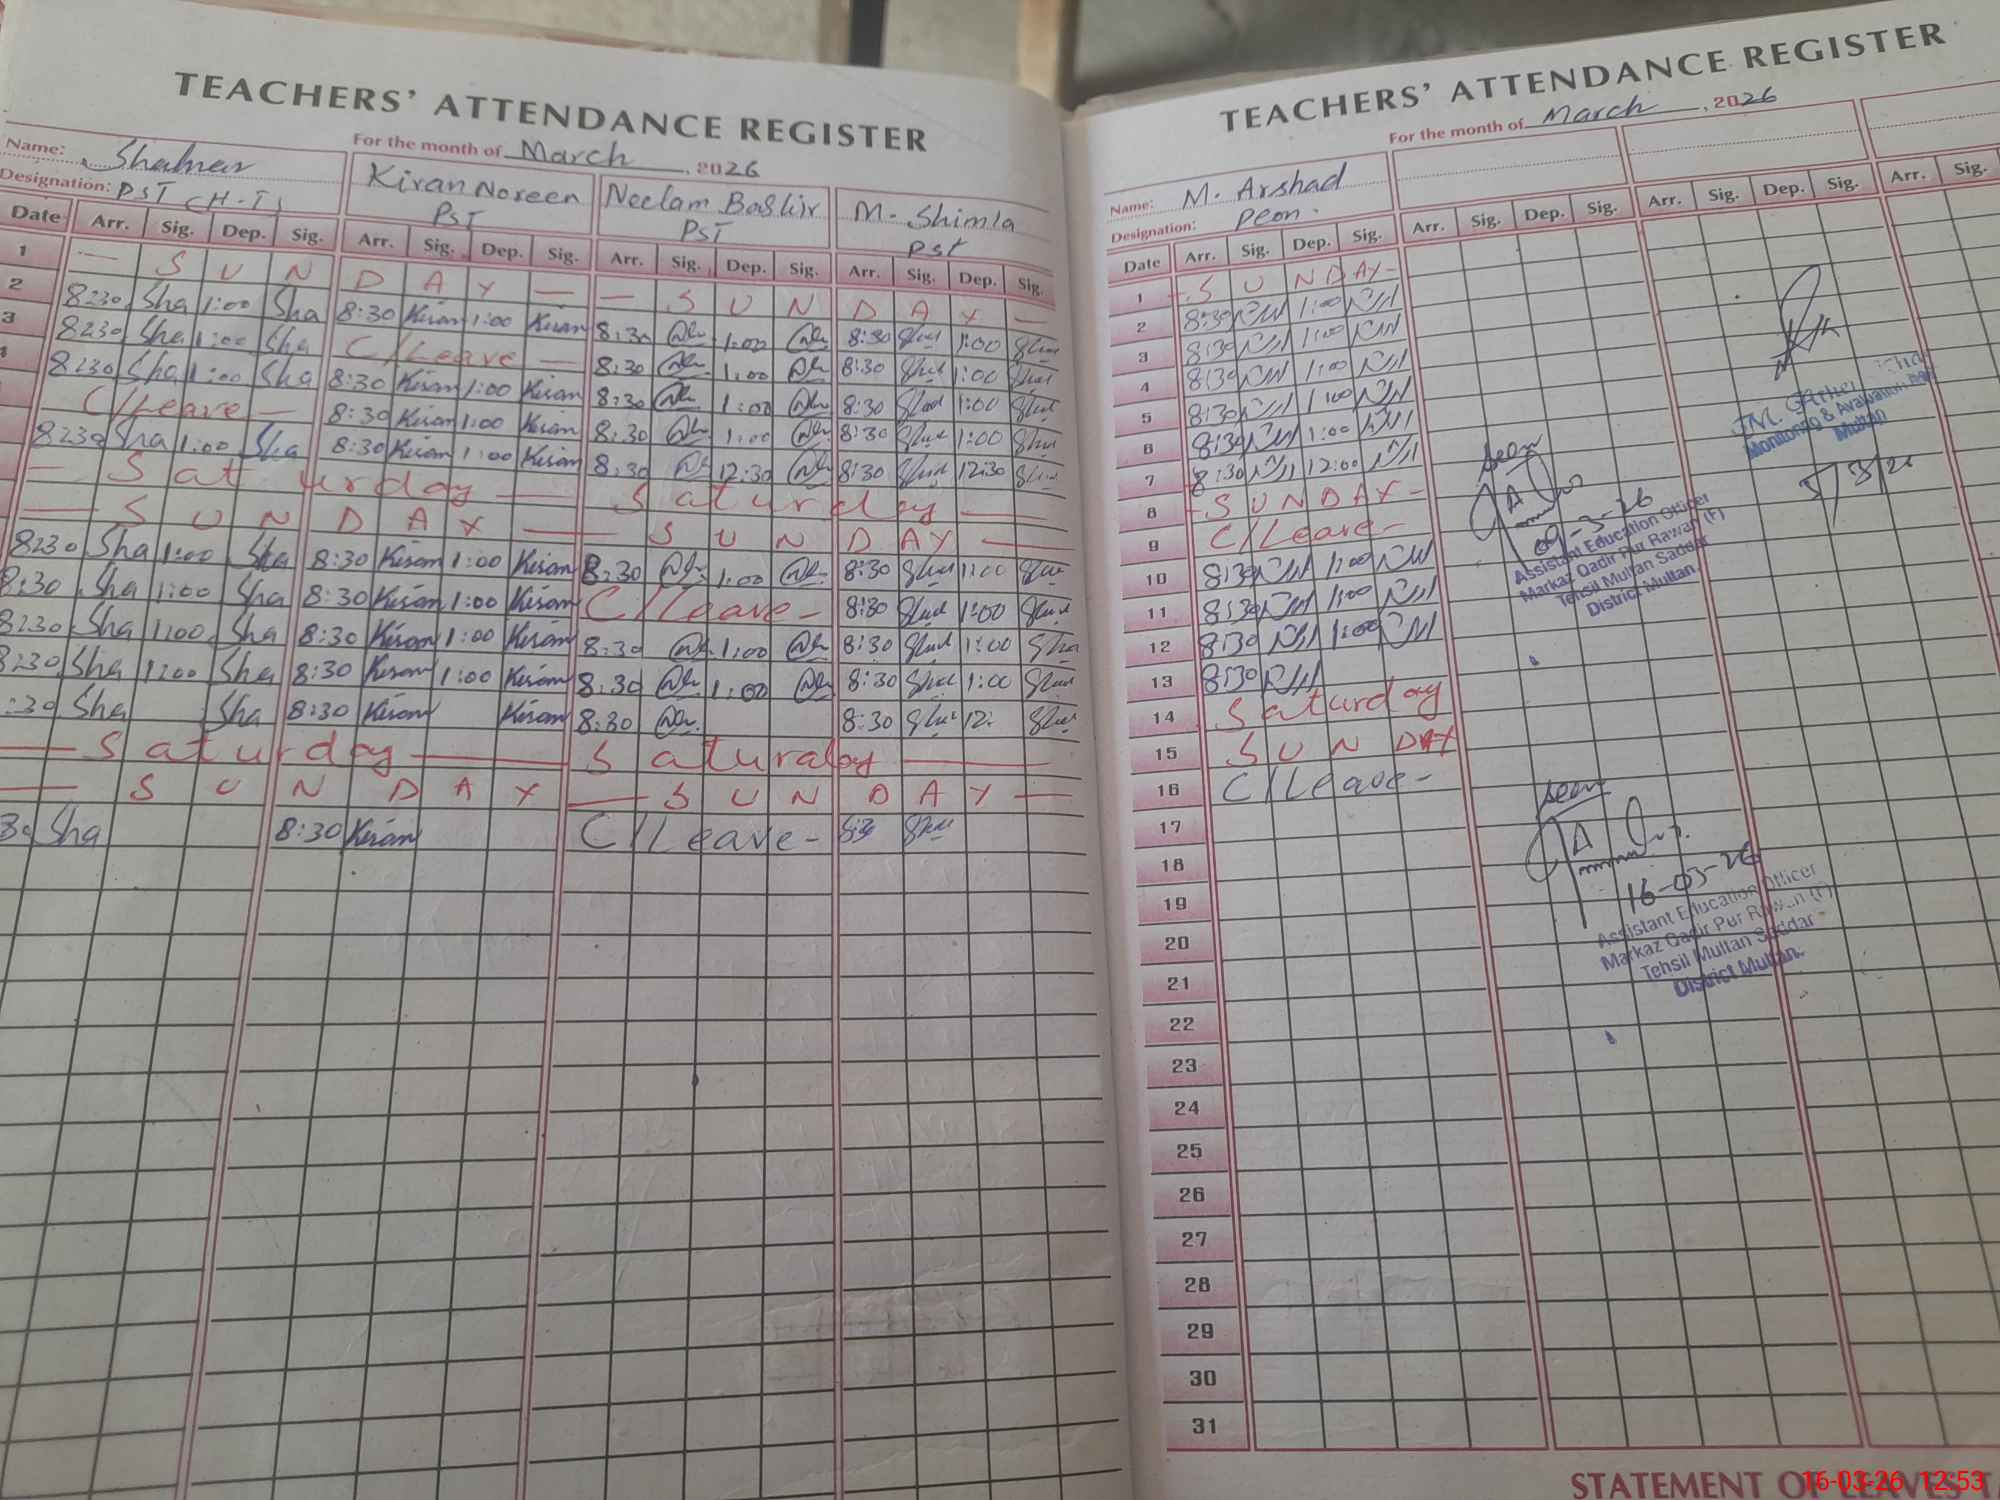 TEACHERS' ATTENDANCE REGISTER
For the month of March, 2026
Name: Kiran Noreen Neelam Bashir M. Shimla
Designation: PST (H.T) PST PST PST
Date Arr. Sig. Dep. Sig. Arr. Sig. Dep. Sig. Arr. Sig. Dep. Sig. Arr. Sig. Dep. Sig.
1 — S U N D A Y — — S U N D A Y —
2 8:30 Sha 1:00 Sha 8:30 Kiran 1:00 Kiran 8:30 1:00 8:30 1:00
3 8:30 Sha 1:00 Sha C/Leave — 8:30 1:00 8:30 1:00
8:30 Sha 1:00 Sha 8:30 Kiran 1:00 Kiran 8:30 1:00 8:30 1:00
C/Leave — 8:30 Kiran 1:00 Kiran 8:30 1:00 8:30 1:00
8:30 Sha 1:00 Sha 8:30 Kiran 1:00 Kiran 8:30 12:30 8:30 12:30
— Saturday — Saturday —
— S U N D A Y — S U N D A Y —
8:30 Sha 1:00 Sha 8:30 Kiran 1:00 Kiran 8:30 1:00 8:30 1:00
8:30 Sha 1:00 Sha 8:30 Kiran 1:00 Kiran C/Leave — 8:30 1:00
8:30 Sha 1:00 Sha 8:30 Kiran 1:00 Kiran 8:30 1:00 8:30 1:00
8:30 Sha 1:00 Sha 8:30 Kiran 1:00 Kiran 8:30 1:00 8:30 1:00
:30 Sha Sha 8:30 Kiran Kiran 8:30 8:30 12:
— Saturday — Saturday —
— S U N D A Y — S U N D A Y —
30 Sha 8:30 Kiran C/Leave —
TEACHERS' ATTENDANCE REGISTER
For the month of March, 2026
Name: M. Arshad
Designation: Peon.
Date Arr. Sig. Dep. Sig. Arr. Sig. Dep. Sig. Arr. Sig. Dep. Sig. Arr. Sig.
1 - S U N D A Y -
2 8:30 1:00
3 8:30 1:00
4 8:30 1:00
5 8:30 1:00
6 8:30 1:00
7 8:30 12:00
8 - S U N D A Y -
9 C/Leave -
10 8:30 1:00
11 8:30 1:00
12 8:30 1:00
13 8:30
14 Saturday
15 S U N D A Y
16 C/Leave -
17
18
19
20
21
22
23
24
25
26
27
28
29
30
31
Monitoring &
Multan
5/3/26
Seen
09-3-26
Assistant Education Officer
Markaz Qadir Pur Rawan (F)
Tehsil Multan Saddar
District Multan.
Seen
16-03-26
Assistant Education Officer
Markaz Qadir Pur Rawan (F)
Tehsil Multan Saddar
District Multan.
STATEMENT OF LEAVES
16-03-26 12:53